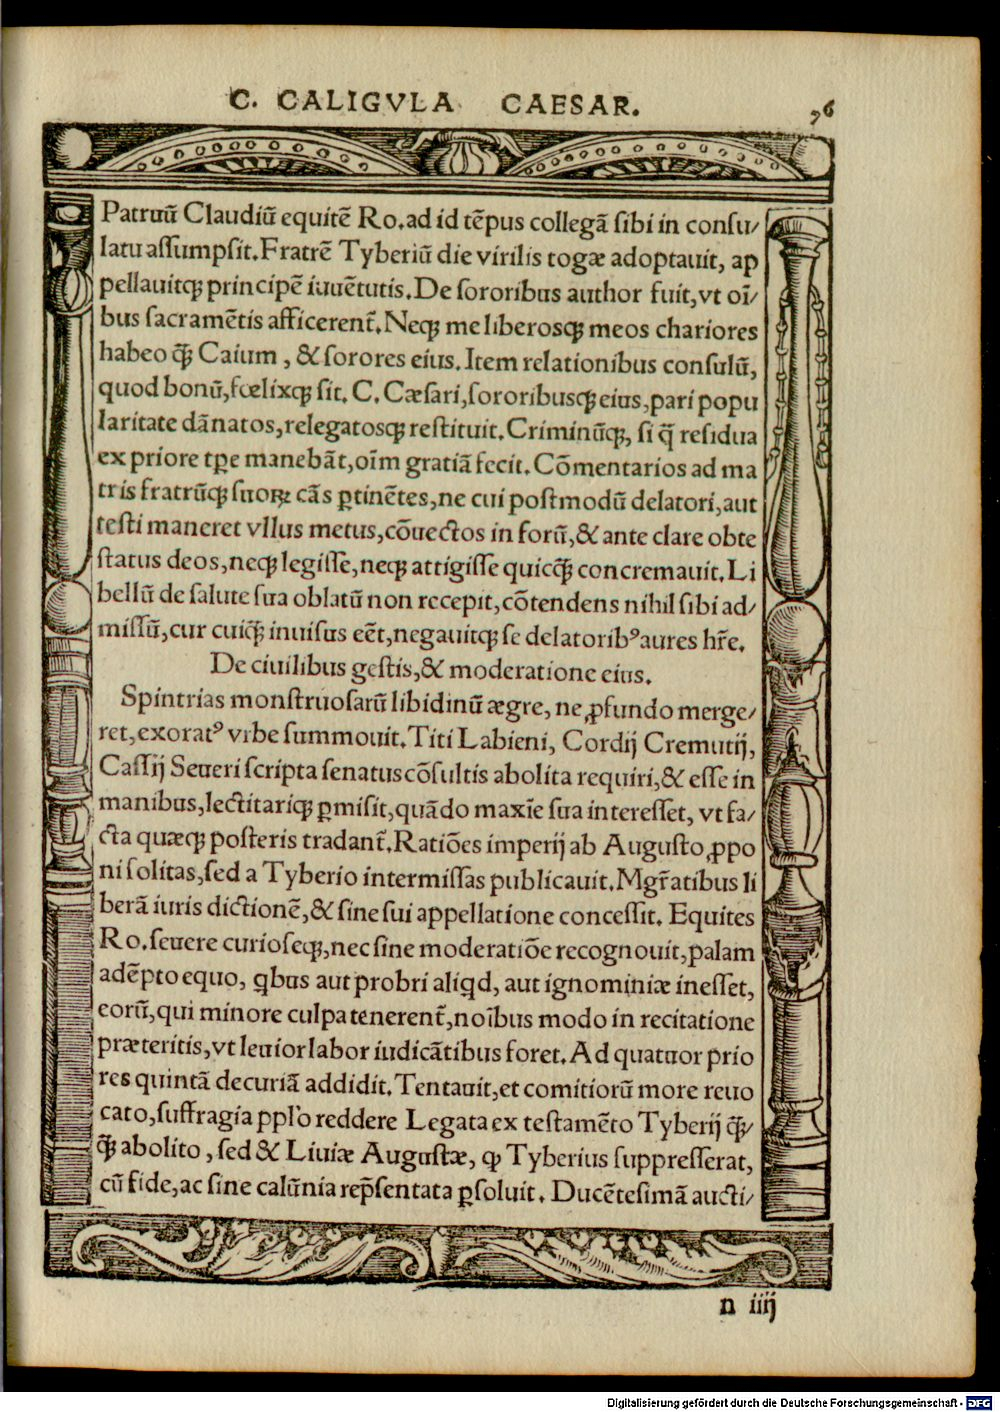 C. CALIGVLA CAESAR.
76
Patruū Claudiū equitē Ro.ad id tēpus collegā sibi in consu/
latu assumpsit.Fratrē Tyberiū die virilis togæ adoptauit, ap
pellauitqꝫ principē iuuētutis.De sororibus author fuit,vt oī/
bus sacramētis afficerent᷑.Neqꝫ me liberosqꝫ meos chariores
habeo q̃ꝫ Caium , & sorores eius.Item relationibus consulū,
quod bonū,fœlixqꝫ sit. C. Cæsari,sororibusqꝫ eius,pari popu
laritate dānatos,relegatosqꝫ restituit.Criminūqꝫ, si q̄ residua
ex priore tꝑe manebāt,oīm gratiā fecit.Cōmentarios ad ma
tris fratrūqꝫ suoꝝ cās ꝑtinētes,ne cui postmodū delatori,aut
testi maneret vllus metus,cōuectos in forū,& ante clare obte
status deos,neqꝫ legisse,neqꝫ attigisse quicq̃ꝫ concremauit.Li
bellū de salute sua oblatū non recepit,cōtendens nihil sibi ad/
missū,cur cuiq̃ꝫ inuisus eēt,negauitqꝫ se delatoribꝰ aures hr̄e.
De ciuilibus gestis,& moderatione eius.
Spintrias monstruosarū libidinū ægre, ne ꝓfundo merge/
ret,exoratꝰ vrbe summouit.Titi Labieni, Cordij Cremutij,
Cassij Seueri scripta senatuscōsultis abolita requiri,& esse in
manibus,lectitariqꝫ ꝑmisit,quādo maxīe sua interesset, vt fa/
cta quæqꝫ posteris tradant᷑.Ratiōes imperij ab Augusto ꝓpo
ni solitas,sed a Tyberio intermissas publicauit.Mgr̄atibus li
berā iuris dictionē,& sine sui appellatione concessit. Equites
Ro.seuere curioseqꝫ,nec sine moderatiōe recognouit,palam
adēpto equo, qͥbus aut probri aliqͥd, aut ignominiæ inesset,
eorū,qui minore culpa tenerent᷑,noībus modo in recitatione
præteritis,vt leuior labor iudicātibus foret.Ad quatuor prio
res quintā decuriā addidit.Tentauit,et comitiorū more reuo
cato,suffragia ppl̄o reddere Legata ex testamēto Tyberij q̃ꝫ/
q̃ꝫ abolito , sed & Liuiæ Augustæ, ꝙ Tyberius suppresserat,
cū fide,ac sine calūnia rep̄sentata ꝑsoluit. Ducētesimā aucti/
n iiij
Digitalisierung gefördert durch die Deutsche Forschungsgemeinschaft - DFG